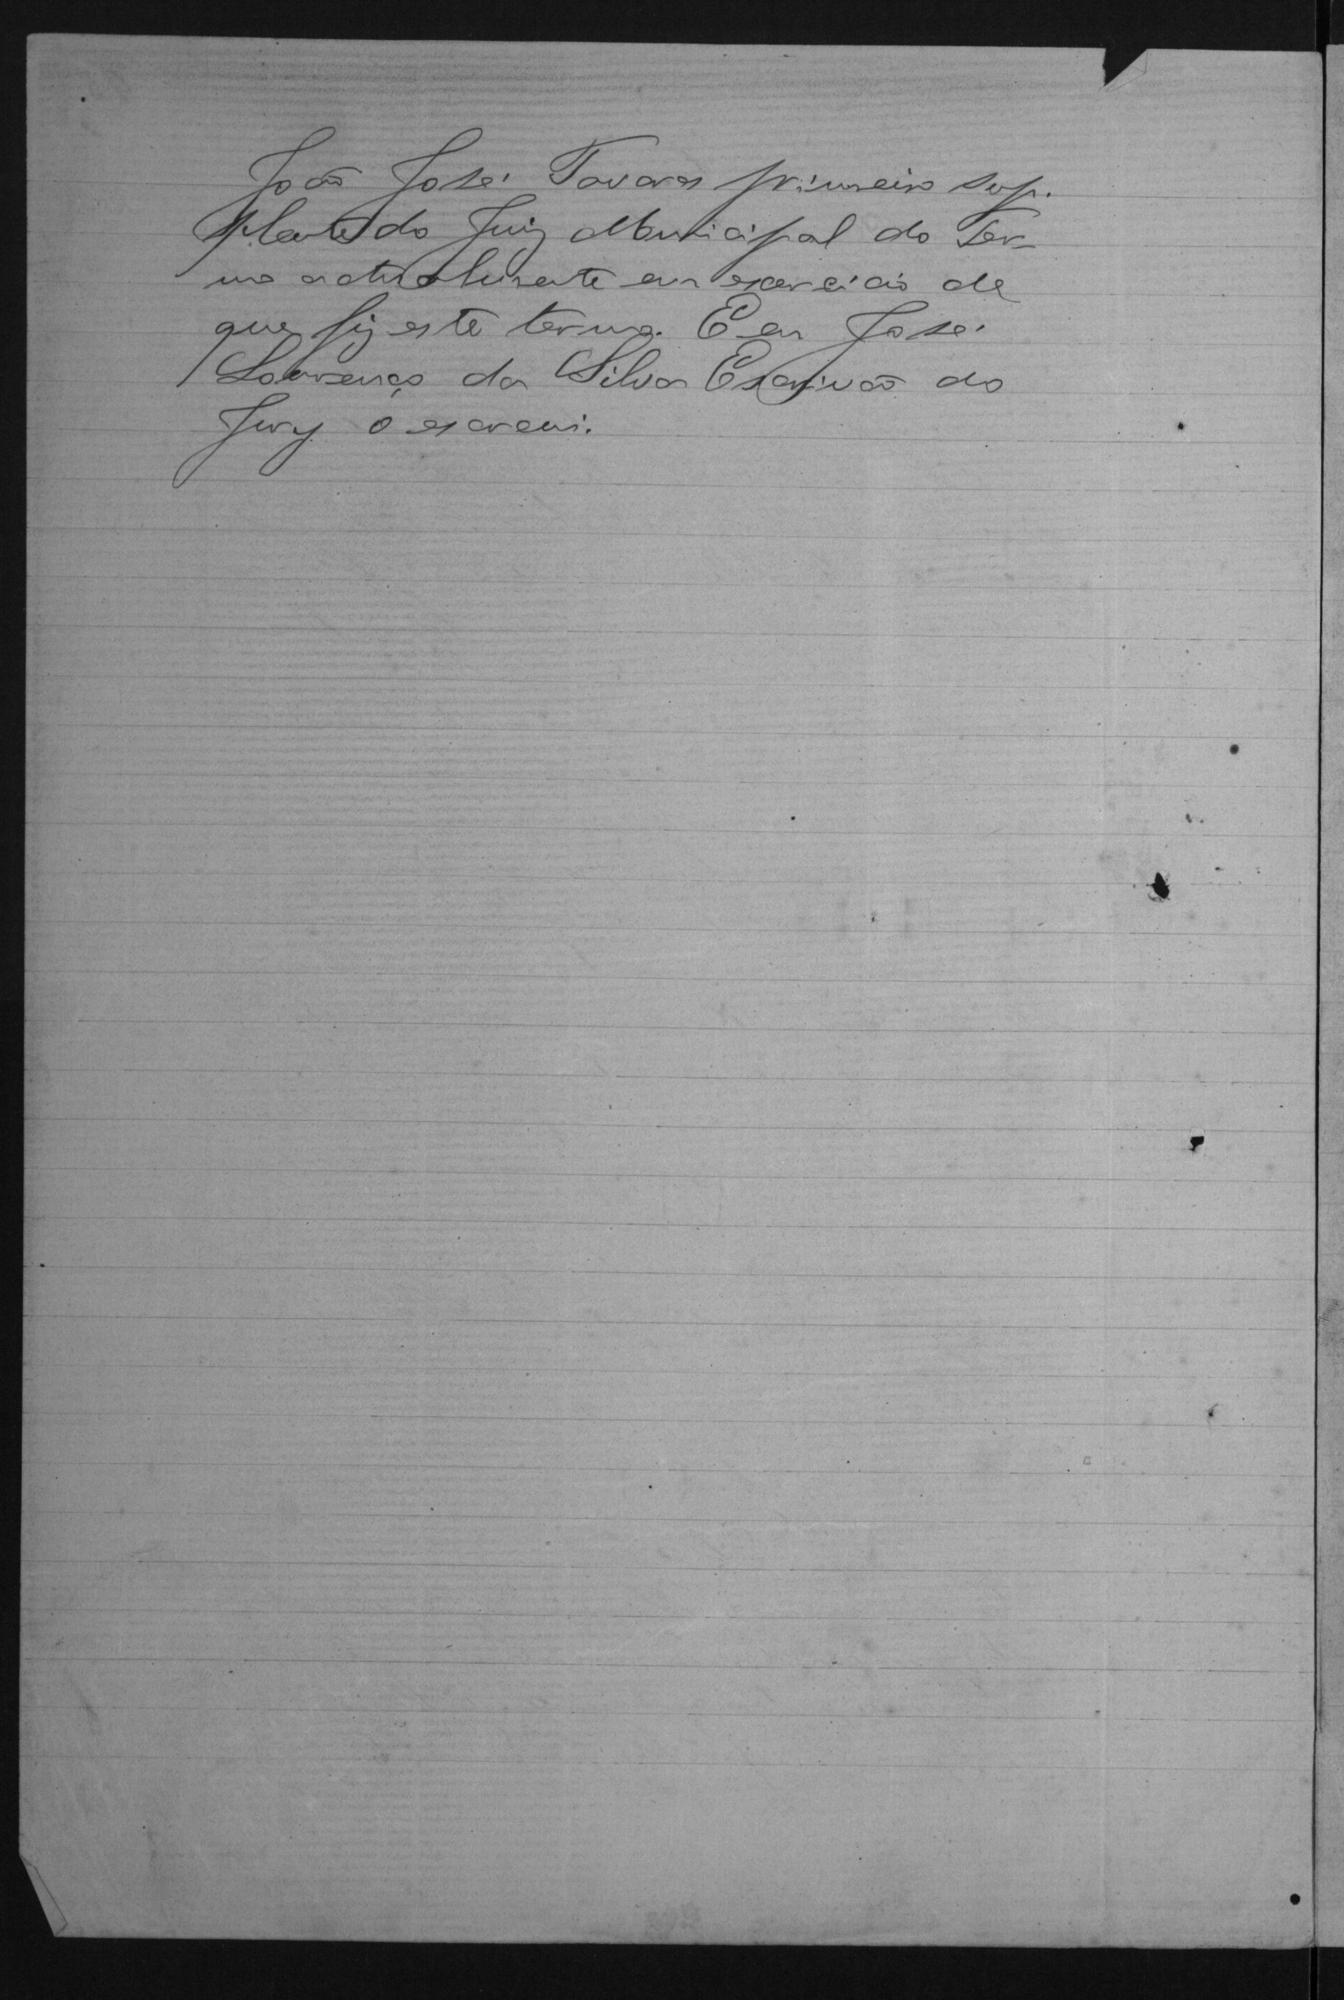 João José Tavares primeiro sup-
plente do Juiz Municipal do Ter-
mo actualmente em exercicio de
que fiz este termo. E eu José
Lourenço da Silva Escrivão do
Jury o escrevi.